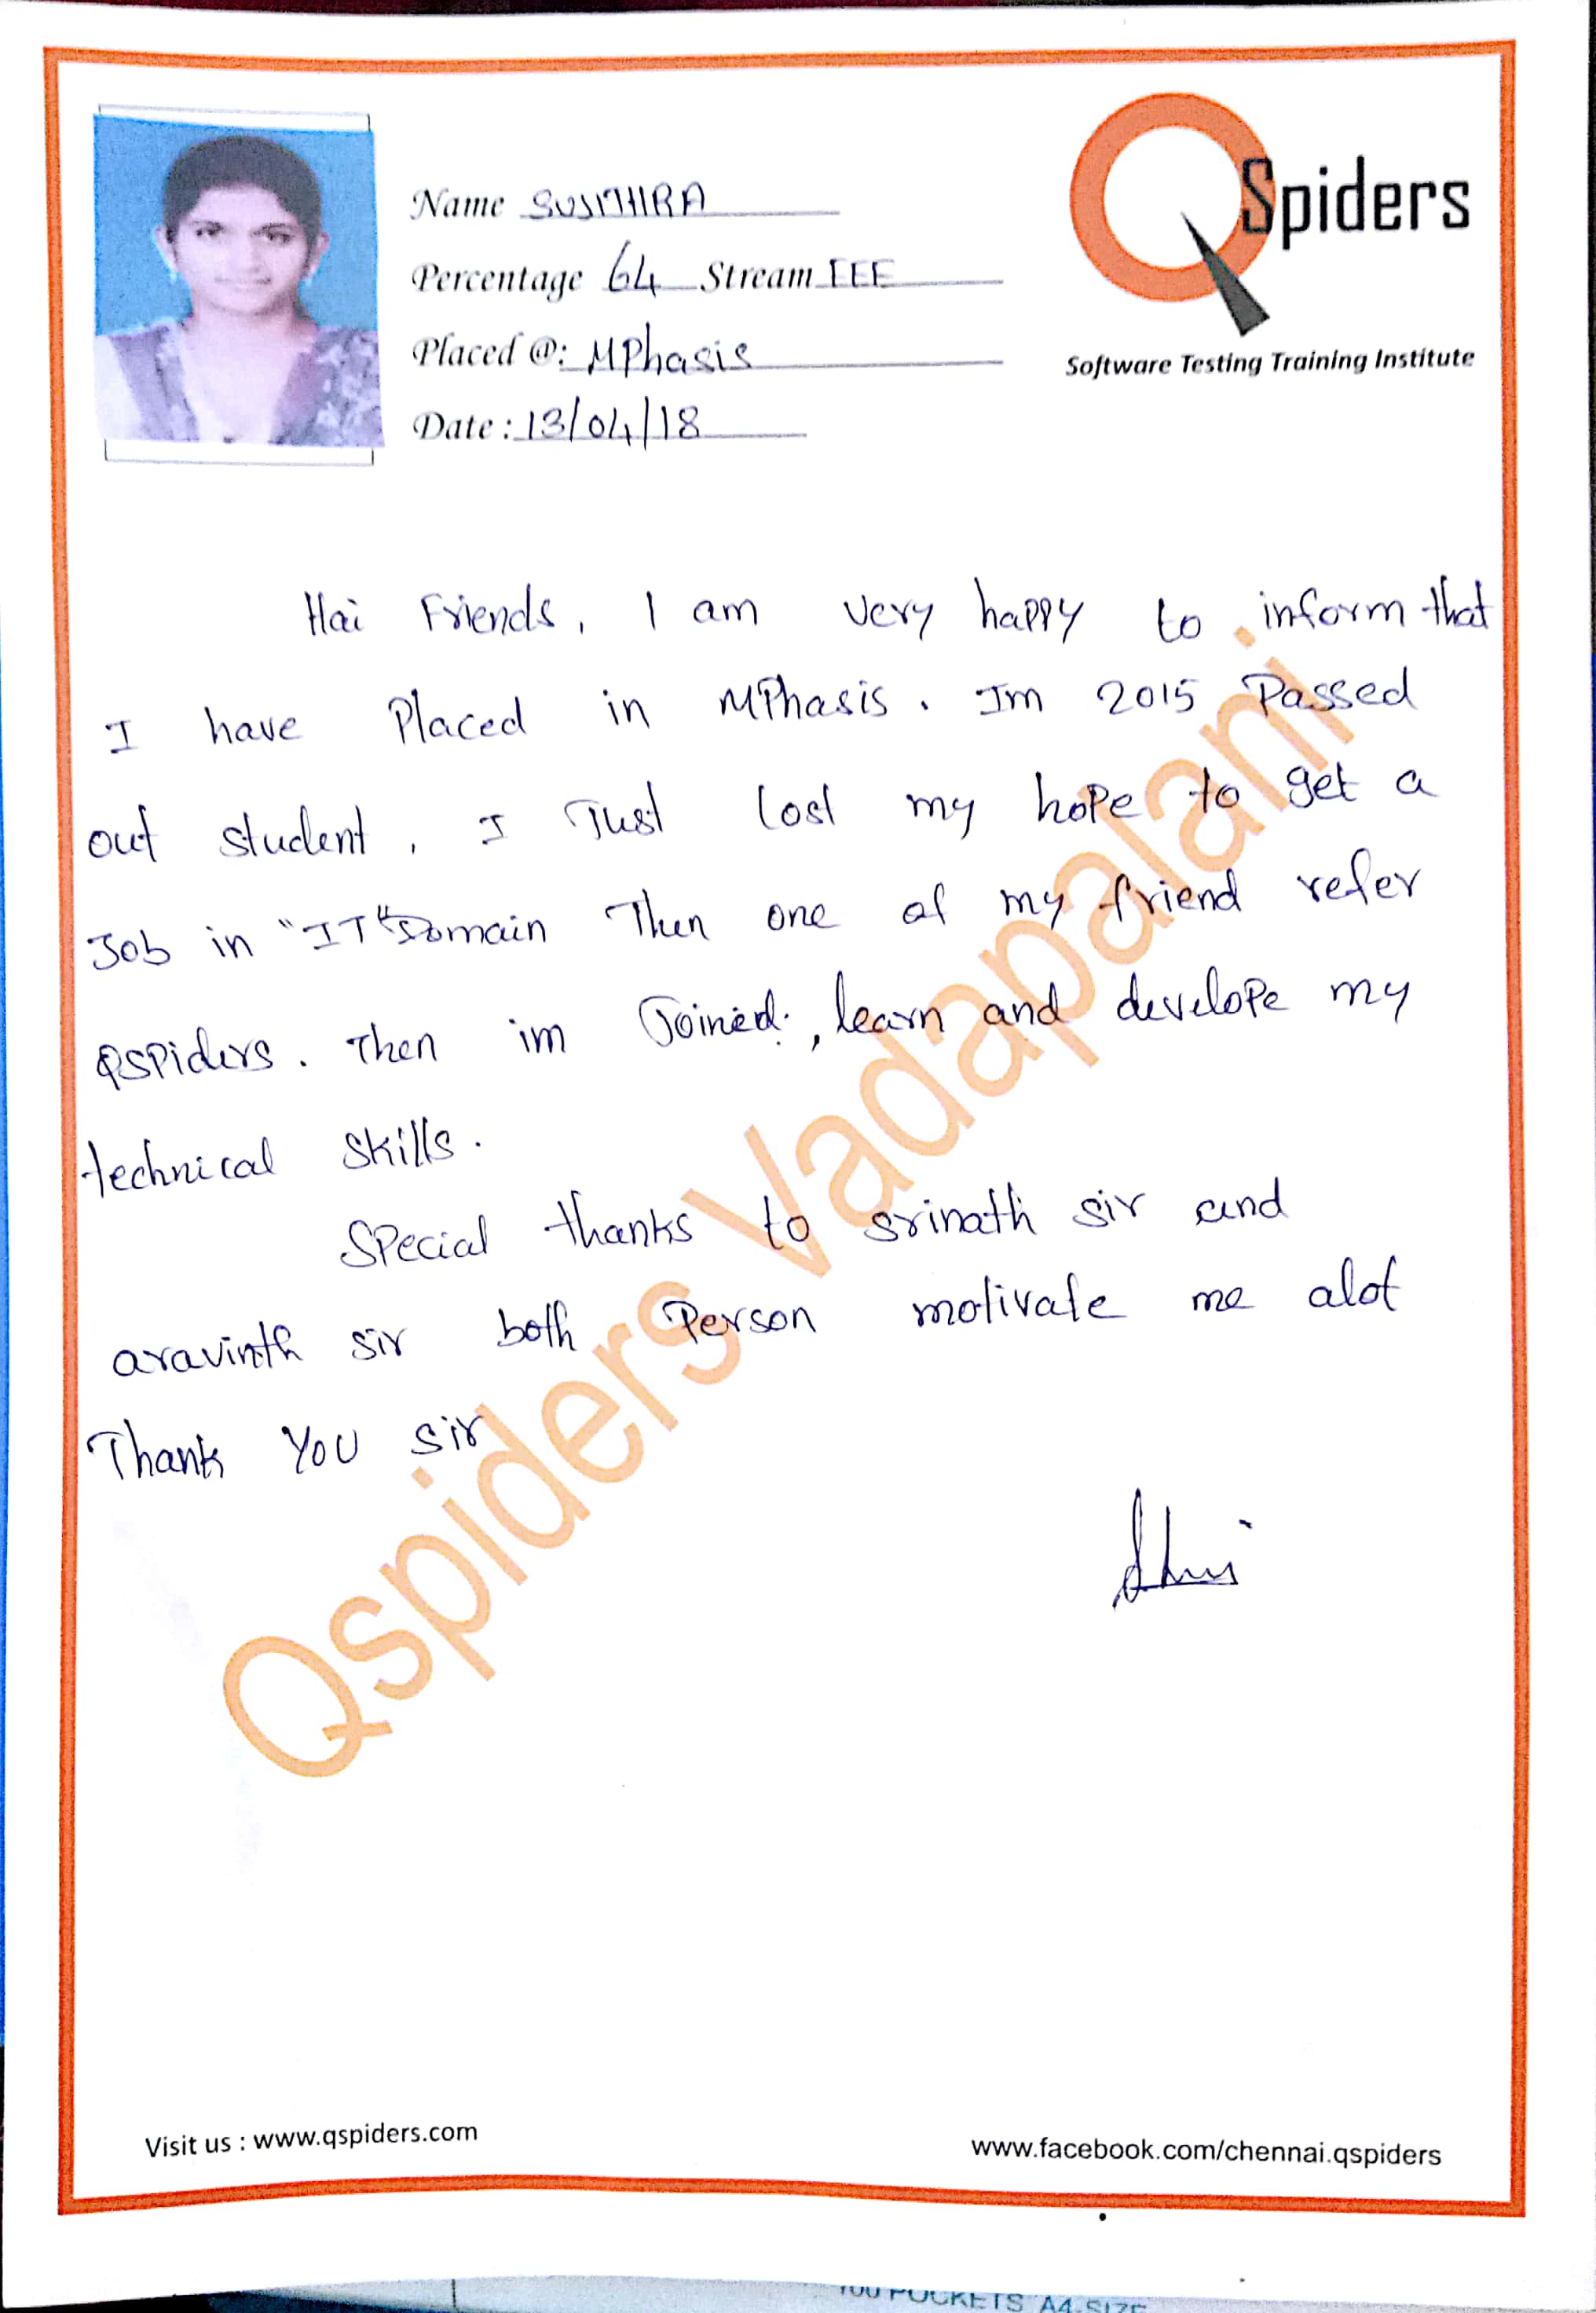 Name SUSMHIRA
Percentage 64 Stream EEE
Placed @: MPhasis
Date : 13/04/18
QSpiders
Software Testing Training Institute
Hai Friends, I am very happy to inform that
I have Placed in MPhasis. Im 2015 Passed
out student, I Just lost my hope to get a
Job in "IT" Domain Then one of my friend refer
QSPiders. Then im Joined, learn and develope my
technical skills.
Special thanks to srinath sir and
aravinth sir both Person motivate me alot
Thank You sir
Qspiders Vadapalani
Visit us : www.qspiders.com
www.facebook.com/chennai.qspiders
POCKETS A4-SIZE